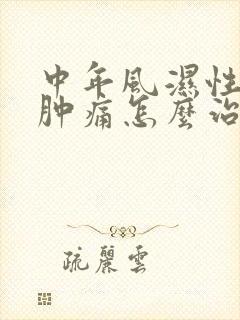 中年風濕性
肿痛怎麼治
疏麗雲